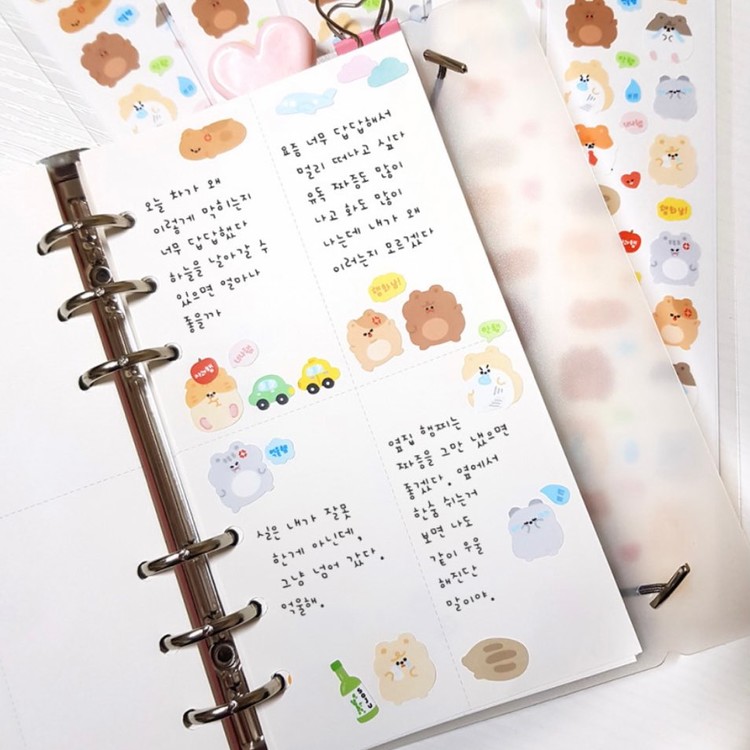 오늘 화가 왜
이렇게 막히는지
너무 답답했다
하늘을 날아갈 수
있으면 얼마나
좋을까
요즘 너무 답답해서
멀리 떠나고 싶다
유독 짜증도 많이
나고 화도 많이
나는데 내가 왜
이러는지 모르겠다
햄화남!
실은 내가 잘못
한게 아닌데,
그냥 넘어 갔다.
억울해.
옆집 햄찌는
짜증을 그만 냈으면
좋겠다. 옆에서
한숨 쉬는거
보면 나도
같이 우울
해진단
말이야.
억울햄
SOJU